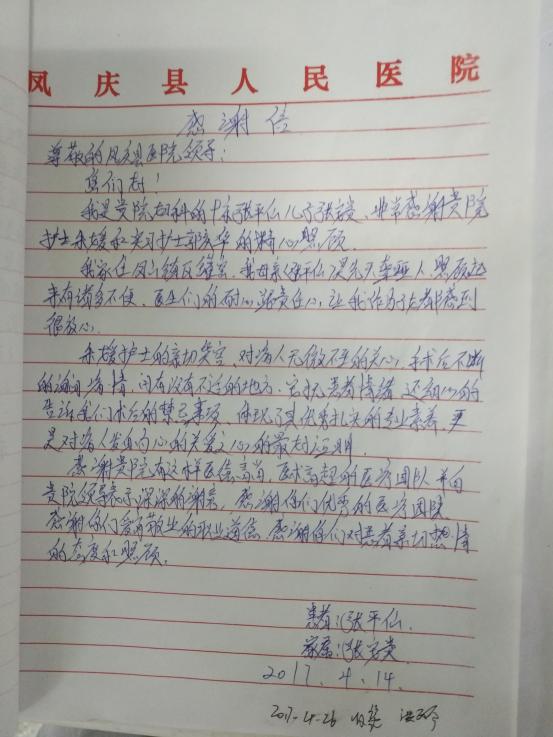 凤庆县人民医院
感谢信
尊敬的凤庆县医院领导:
您们好!
我是贵院妇科的 张平仙儿子张 贵、非常感谢贵院
护士朱媛和实习护士 华的精心照顾。
我家住凤山镇 ,我母亲张平仙是先天聋哑人,照顾起
来有诸多不便、医生们的耐心跟责任心,让我作为子女都感到
很放心。
朱媛护士的亲切笑容、对病人无微不至的关心,手术后不断
的询问病情、问有没有不适的地方、安抚患者情绪、还细心的
告诉我们术后的禁忌事项、体现了其优秀扎实的专业素养,更
是对病人发自内心的关爱之心的最好证明。
感谢贵院有这样医德高尚,医术高超的医疗团队 并向
贵院领导表示深深的谢意,感谢你们优秀的医疗团队
感谢你们爱岗敬业的职业道德 感谢你们对患者亲切热情
的态度和照顾。
患者:张平仙.
家属:张 贵
2017.4.14.
2017-4-26